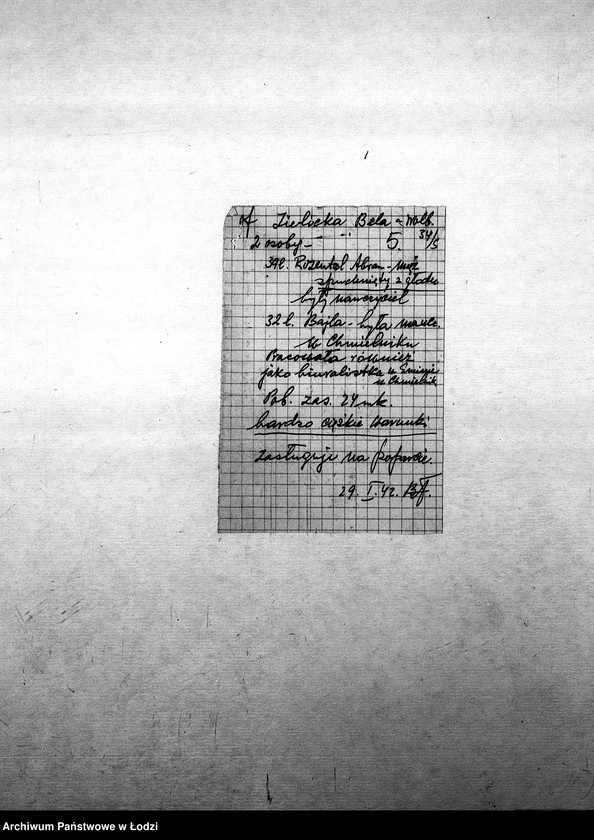 Zielicka Bela - Wolb.
2 osoby - 5. 34/5
39 l. Rozental Abram - mąż
spuchnięty z głodu
były nauczyciel
32 l. Bajla - była naucz.
w Chmielniku
Pracowała również
jako biuralistka w Gminie
w Chmielnik
Pob. zas. 24 mk.
bardzo ciężkie warunki
zasługuje na poparcie.
29. I. 42.
Archiwum Państwowe w Łodzi